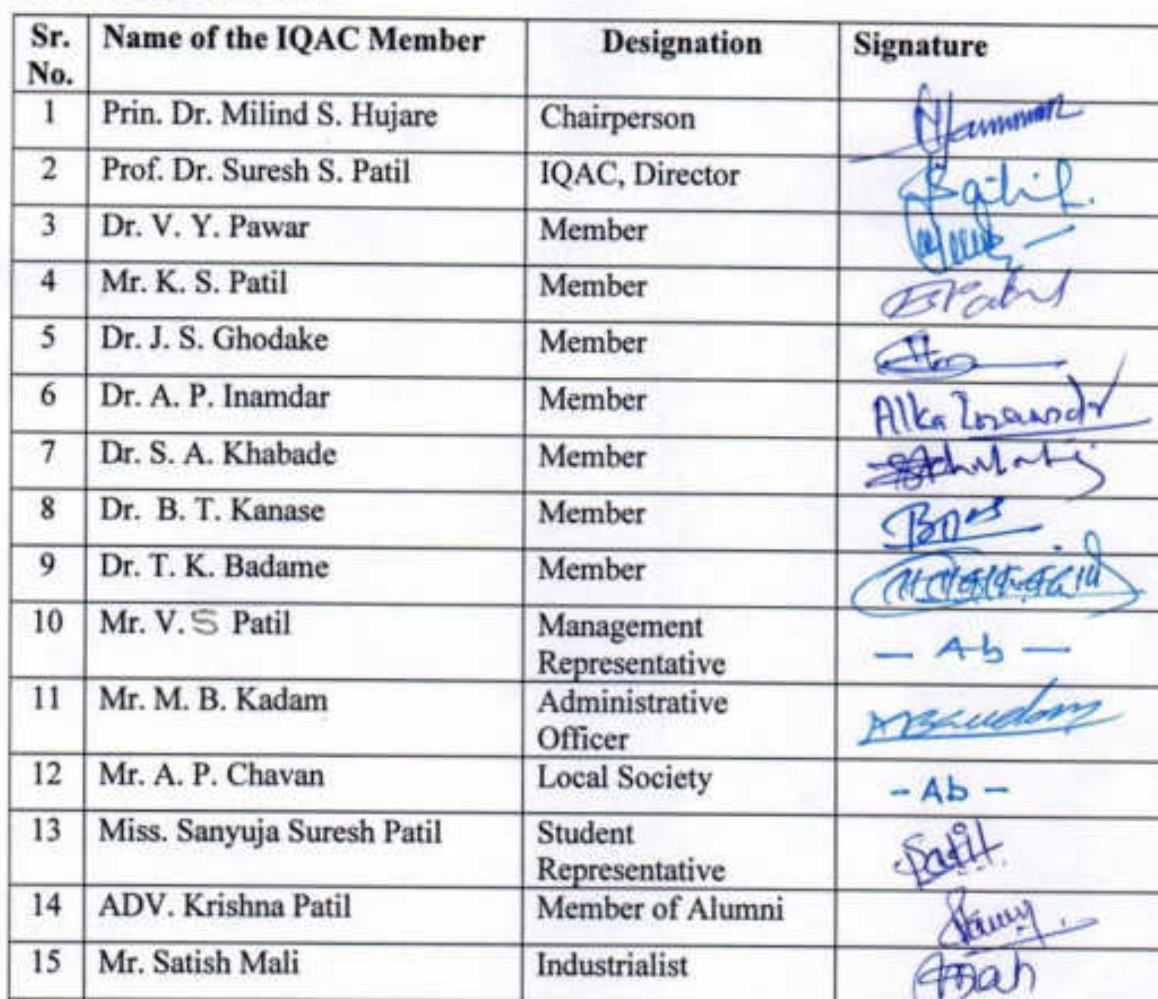 Sr. No. Name of the IQAC Member Designation Signature
1 Prin. Dr. Milind S. Hujare Chairperson
2 Prof. Dr. Suresh S. Patil IQAC, Director Patil.
3 Dr. V. Y. Pawar Member
4 Mr. K. S. Patil Member
5 Dr. J. S. Ghodake Member
6 Dr. A. P. Inamdar Member Alka Inamdar
7 Dr. S. A. Khabade Member
8 Dr. B. T. Kanase Member
9 Dr. T. K. Badame Member
10 Mr. V. S Patil Management Representative — Ab —
11 Mr. M. B. Kadam Administrative Officer
12 Mr. A. P. Chavan Local Society - Ab -
13 Miss. Sanyuja Suresh Patil Student Representative
14 ADV. Krishna Patil Member of Alumni
15 Mr. Satish Mali Industrialist